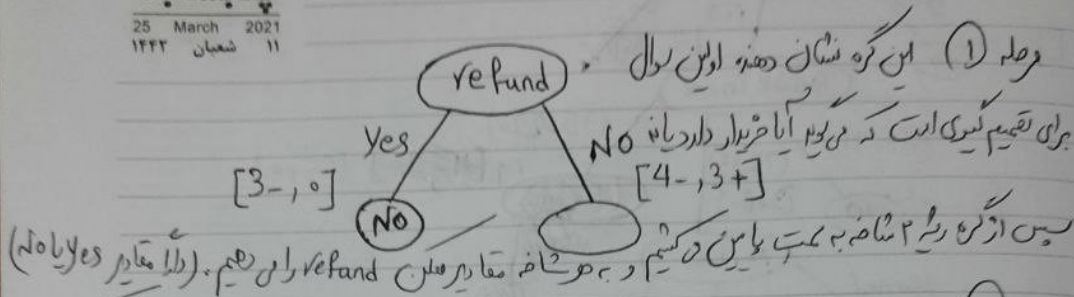 25 March 2021
۱۱ شعبان ۱۴۴۲
مرحله ① این گره نشان دهنده اولین سوال
refund
برای تصمیم گیری است که می گوید آیا خریدار دارد یا نه
Yes
NO
[3-, 0]
[4-, 3+]
NO
سپس از گره ریشه ۲ شاخه به سمت پایین می کشیم و به هر شاخه مقادیر ممکن refund را می دهیم. (مقادیر Yes یا No)